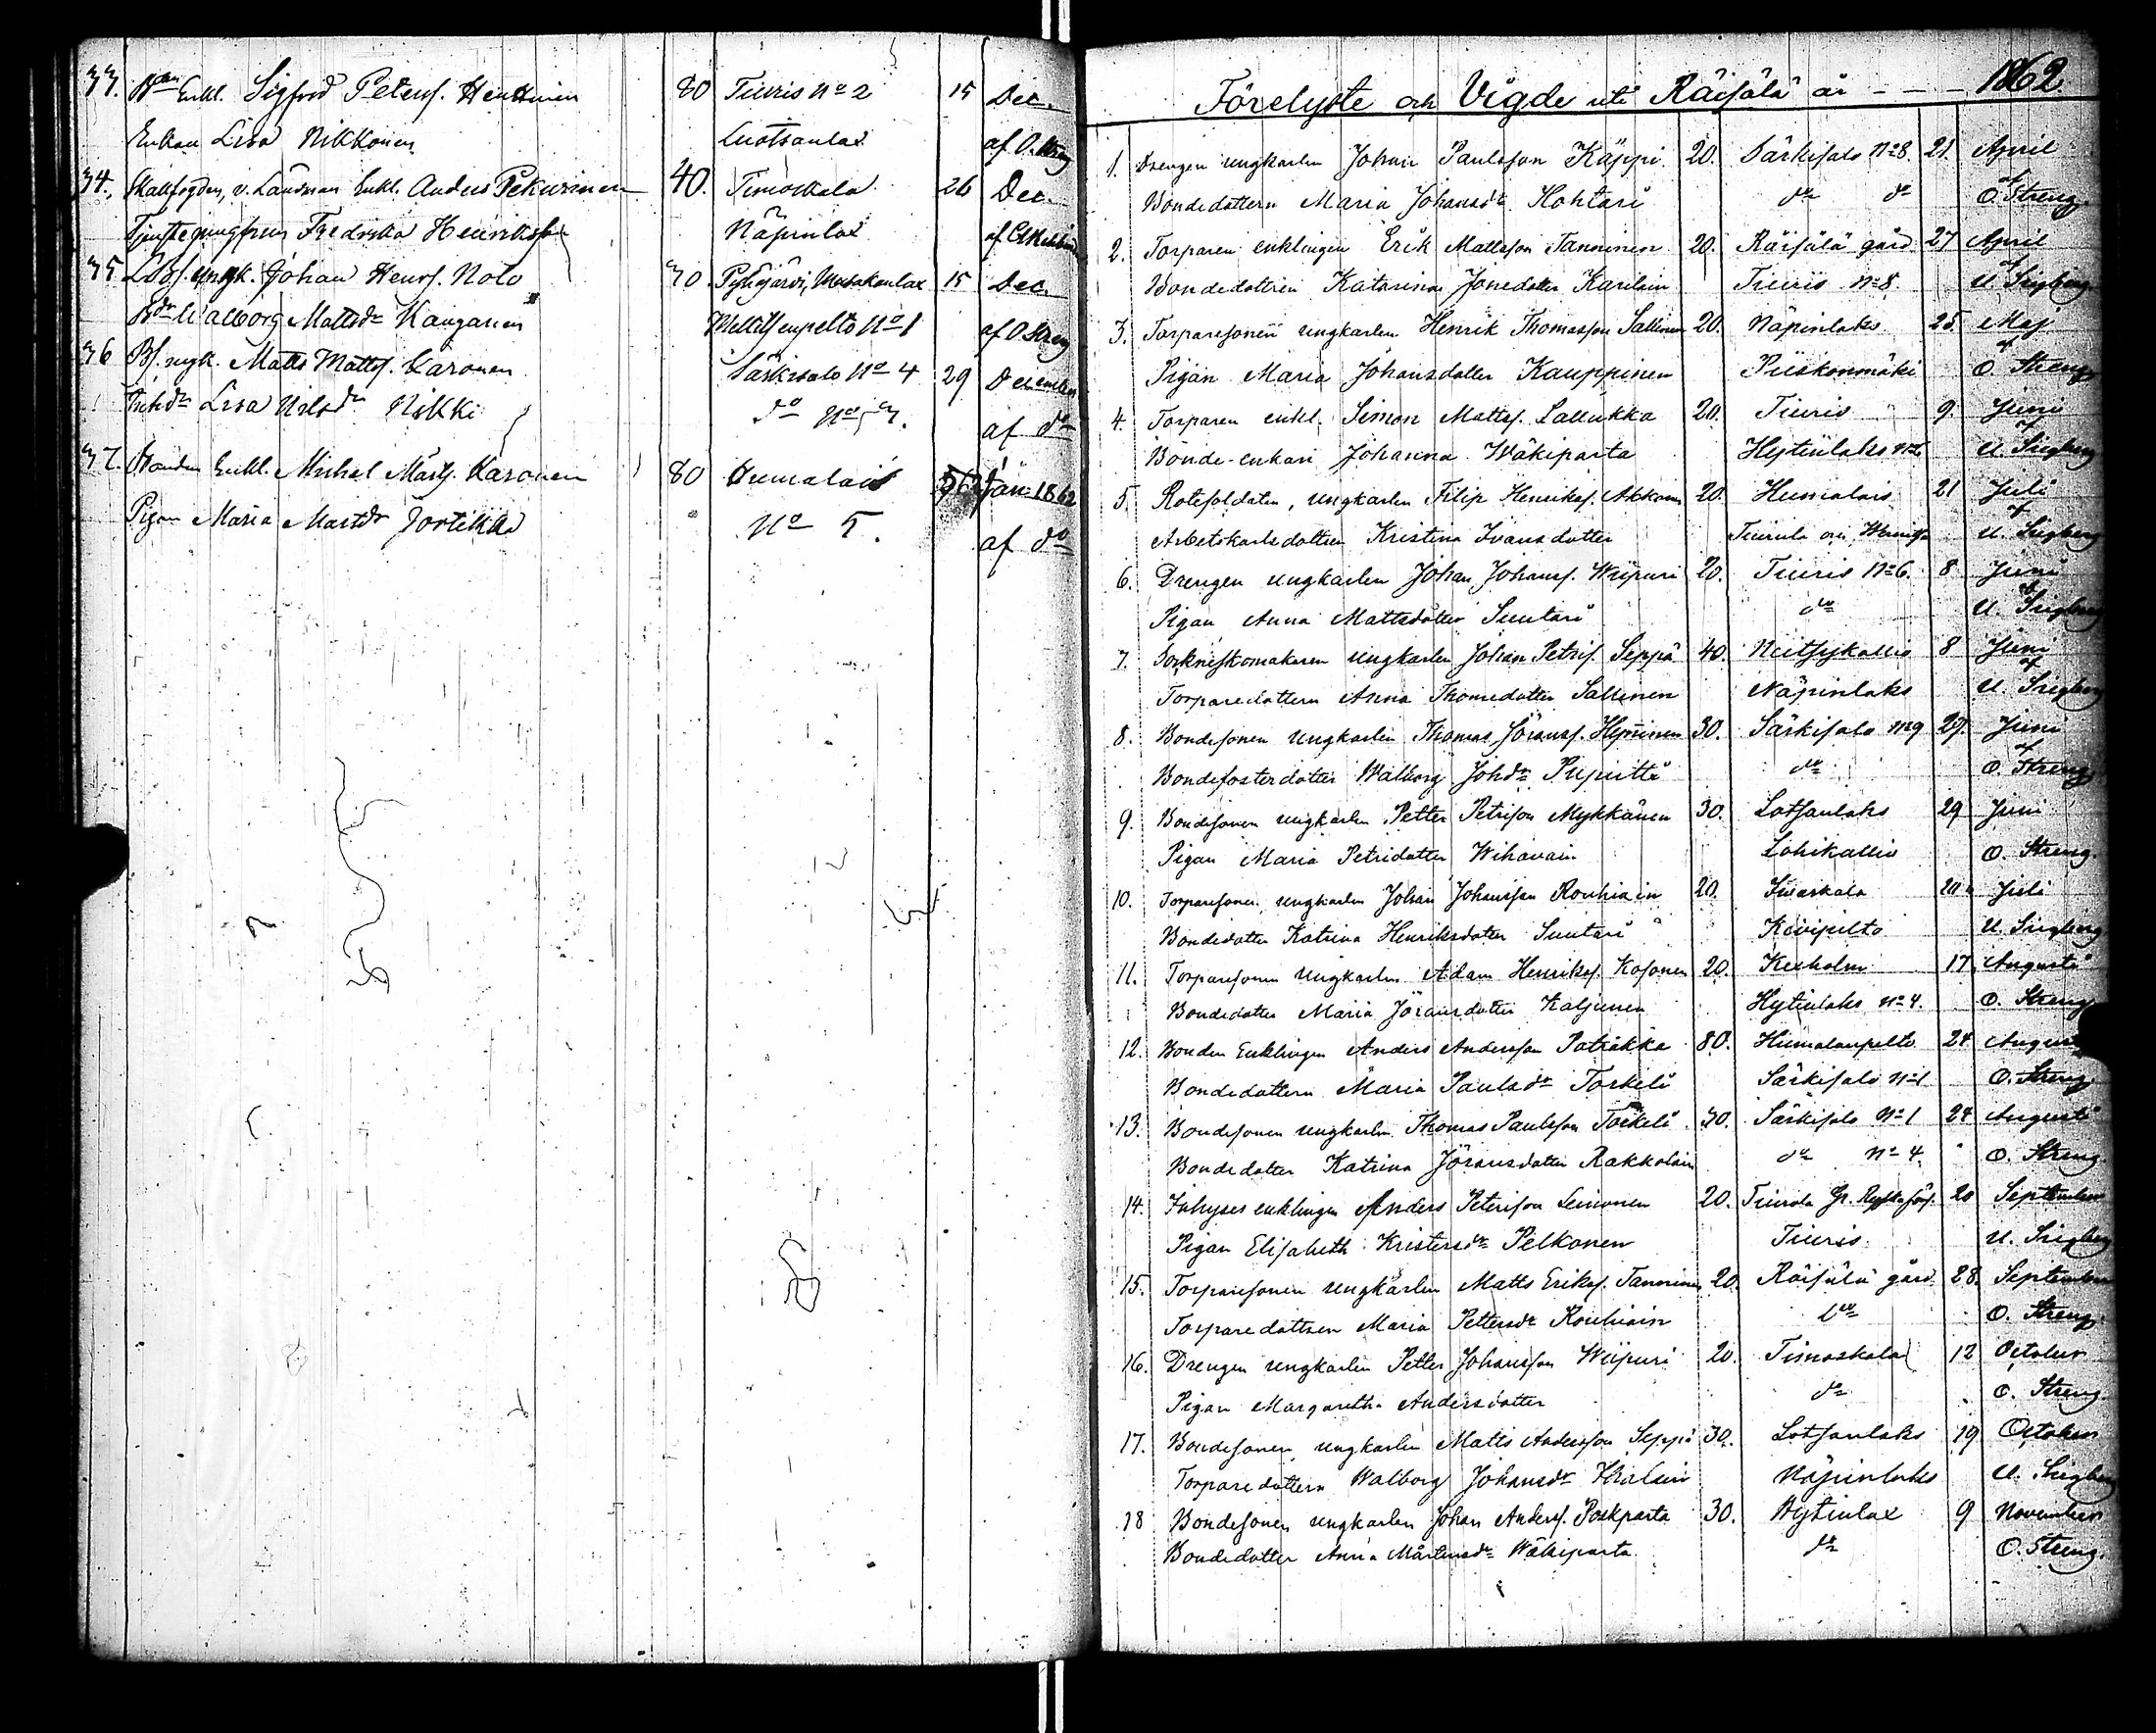 33. Enkl. Sigfred Petersf. Henttinen 80 Tiuris No 2 15 Dec.
Enkan Lisa Nikkonen Luotsanlax af O. Streng
34. Skallfogden, v. Länsman Enkl. Anders Pekurinen 40. Timoskala 26 Dec.
Fredrika Henriksf. Näpinlax
35. ungk. Johan Henrsf. Nolo 30 Pyhäjärvi, 15 Dec.
Walborg Mattsdr Kanganen No 1 af O. Streng
36 Bf. ungk. Matts Mattsf. Karonen Särkisalo No 4 29 December
Lisa Nilsdr Nikki do No 7. af do
37. Bonden Enkl. Michel Mårtf. Karonen 80 Humalais 6 Jan. 1862
Pigan Maria Mårtdr Jortikka No 5. af do
Förelyste och Vigde uti Räisälä år - - - 1862
1. Drengen ungkarlen Johan Paulsson Käppi 20. Särkisalo No 8. 21. April
Bondedottern Maria Johansdr Hohtari do do af O. Streng.
2. Torparen enklingen Erik Mattsson Tanninen 20. Räisälä gård 27 April
Bondedottren Katarina Jönsdotter Karilain Tiuris No 8. af
3. Torparesonen ungkarlen Henrik Thomasson Sallinen 20. Näpinlaks 25. Maj
Pigan Maria Johansdotter Kauppinen Piiskonmäki af O. Streng
4. Torparen enkl. Simon Mattsf. Lallukka 20. Tiuris 9. Juni
Bonde-enkan Johanna Wäkiparta Hytinlaks af
5. Rotesoldaten, ungkarlen Filip Henriksf. Akkanen 20. Humalais 21 Juli
Arbetskarlsdottren Kristina Ivansdotter Tiurula af
6. Drengen ungkarlen Johan Johansf. Wiipuri 20. Tiuris No 6. 8 Juni
Pigan Anna Mattsdotter Suutari do af
7. Sockneskomakaren ungkarlen Johan Petrif. Seppä 40. Neitsykallio 8 Juni
Torparedottern Anna Thomedotter Sallinen Näpinlaks af
8. Bondesonen ungkarlen Thomas Jöransf. Hyminen 30. Särkisalo No 9 29. Juni
Bondefosterdotter Walborg Johdr Pupitti do af O. Streng
9. Bondesonen ungkarlen Petter Petrison Mykkänen 30. Lotsanlaks 29 Juni
Pigan Maria Petridotter Wihavain Lohikallio O. Streng.
10. Torparesonen ungkarlen Johan Johansson Rouhiain 20. Ivaskala 20 Juli
Bondedotter Katrina Henriksdotter Suutari Kivipelto
11. Torparesonen ungkarlen Adam Henriksf. Kosonen 20. Kexholm 17 Augusti
Bondedotter Maria Jöransdotter Kaljunen Hytinlaks No 4. O. Streng
12. Bonden Enklingen Anders Andersson Patrikka 80. Humalanpelto 24 August
Bondedottern Maria Paulsdr Torkeli Särkisalo No 1 O. Streng.
13. Bondesonen ungkarlen Thomas Paulsson Torkeli 30. Särkisalo No 1 24 Augusti
Bondedotter Katrina Jöransdotter Rakkolain do No 4. O. Streng.
14. Inhyses enklingen Anders Peterson Leinonen 20. Tiurula 20 September
Pigan Elisabeth Kristersdr Pelkonen Tiuris.
15. Torparesonen ungkarlen Matts Eriksf. Tanninen 20. Räisälä gård 28. September
Torparedottren Maria Pettersdr Rouhiain do O. Streng.
16. Drengen ungkarlen Petter Johansson Wiipuri 20. Timoskala 12 October
Pigan Margaretha Andersdotter do O. Streng.
17. Bondesonen ungkarlen Matts Andersson Seppä 30. Lotsanlaks 19 October
Torparedottern Walborg Johansdr Näpinlaks
18 Bondesonen ungkarlen Johan Andersf. Poskparta 30. Hytinlax 9 November
Bondedotter Anna Mårtensdr Wäkiparta do O. Streng.